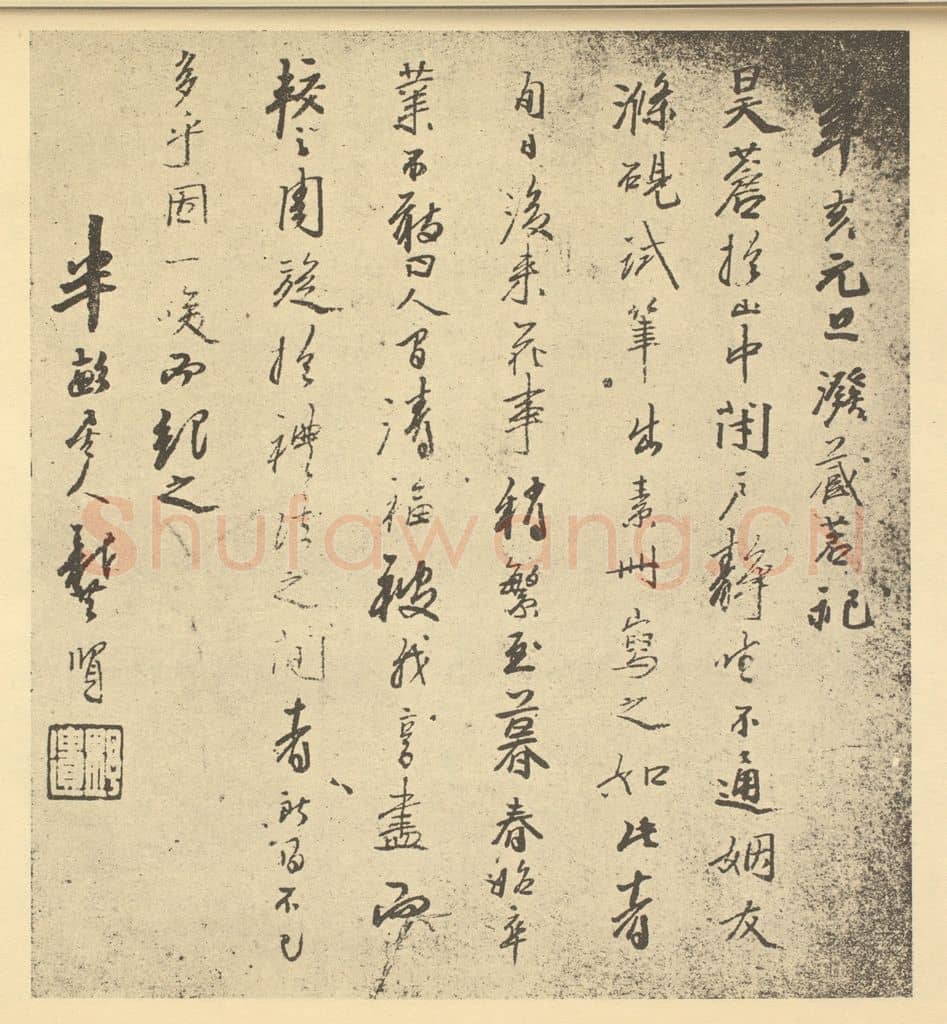 辛亥元旦潑藏茗祀
昊蒼於山中閉戶靜坐不通姻友
滌硯試筆出素冊寫之如此者
旬日後來花事稍繁至暮春始卒
業不敢曰人間清福被我享盡而
較之周旋於禮法之間者所得不已
多乎因一笑而紀之
半畝居人龔賢
Shufawang.CN